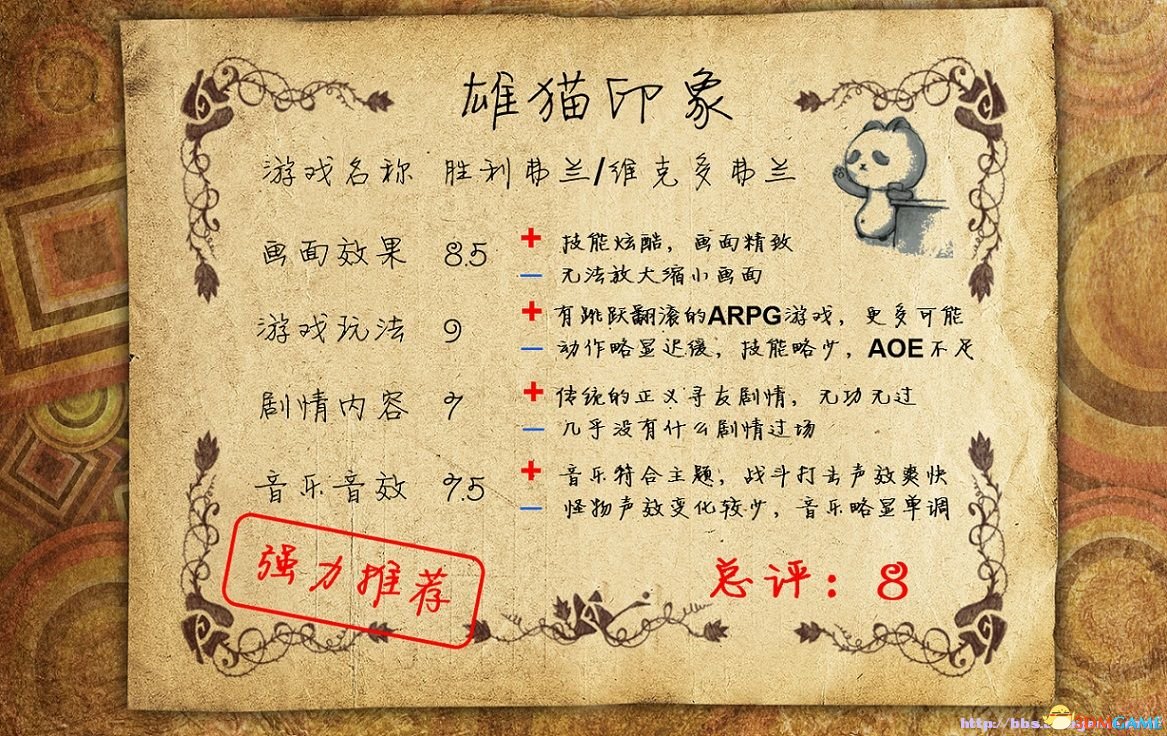 雄猫印象
游戏名称 胜利弗兰/维克多弗兰
画面效果 8.5
+ 技能炫酷，画面精致
— 无法放大缩小画面
游戏玩法 9
+ 有跳跃翻滚的ARPG游戏，更多可能
— 动作略显迟缓，技能略少，AOE不足
剧情内容 7
+ 传统的正义寻友剧情，无功无过
— 几乎没有什么剧情过场
音乐音效 7.5
+ 音乐符合主题，战斗打击声效爽快
— 怪物声效变化较少，音乐略显单调
强力推荐
总评：8
GAME